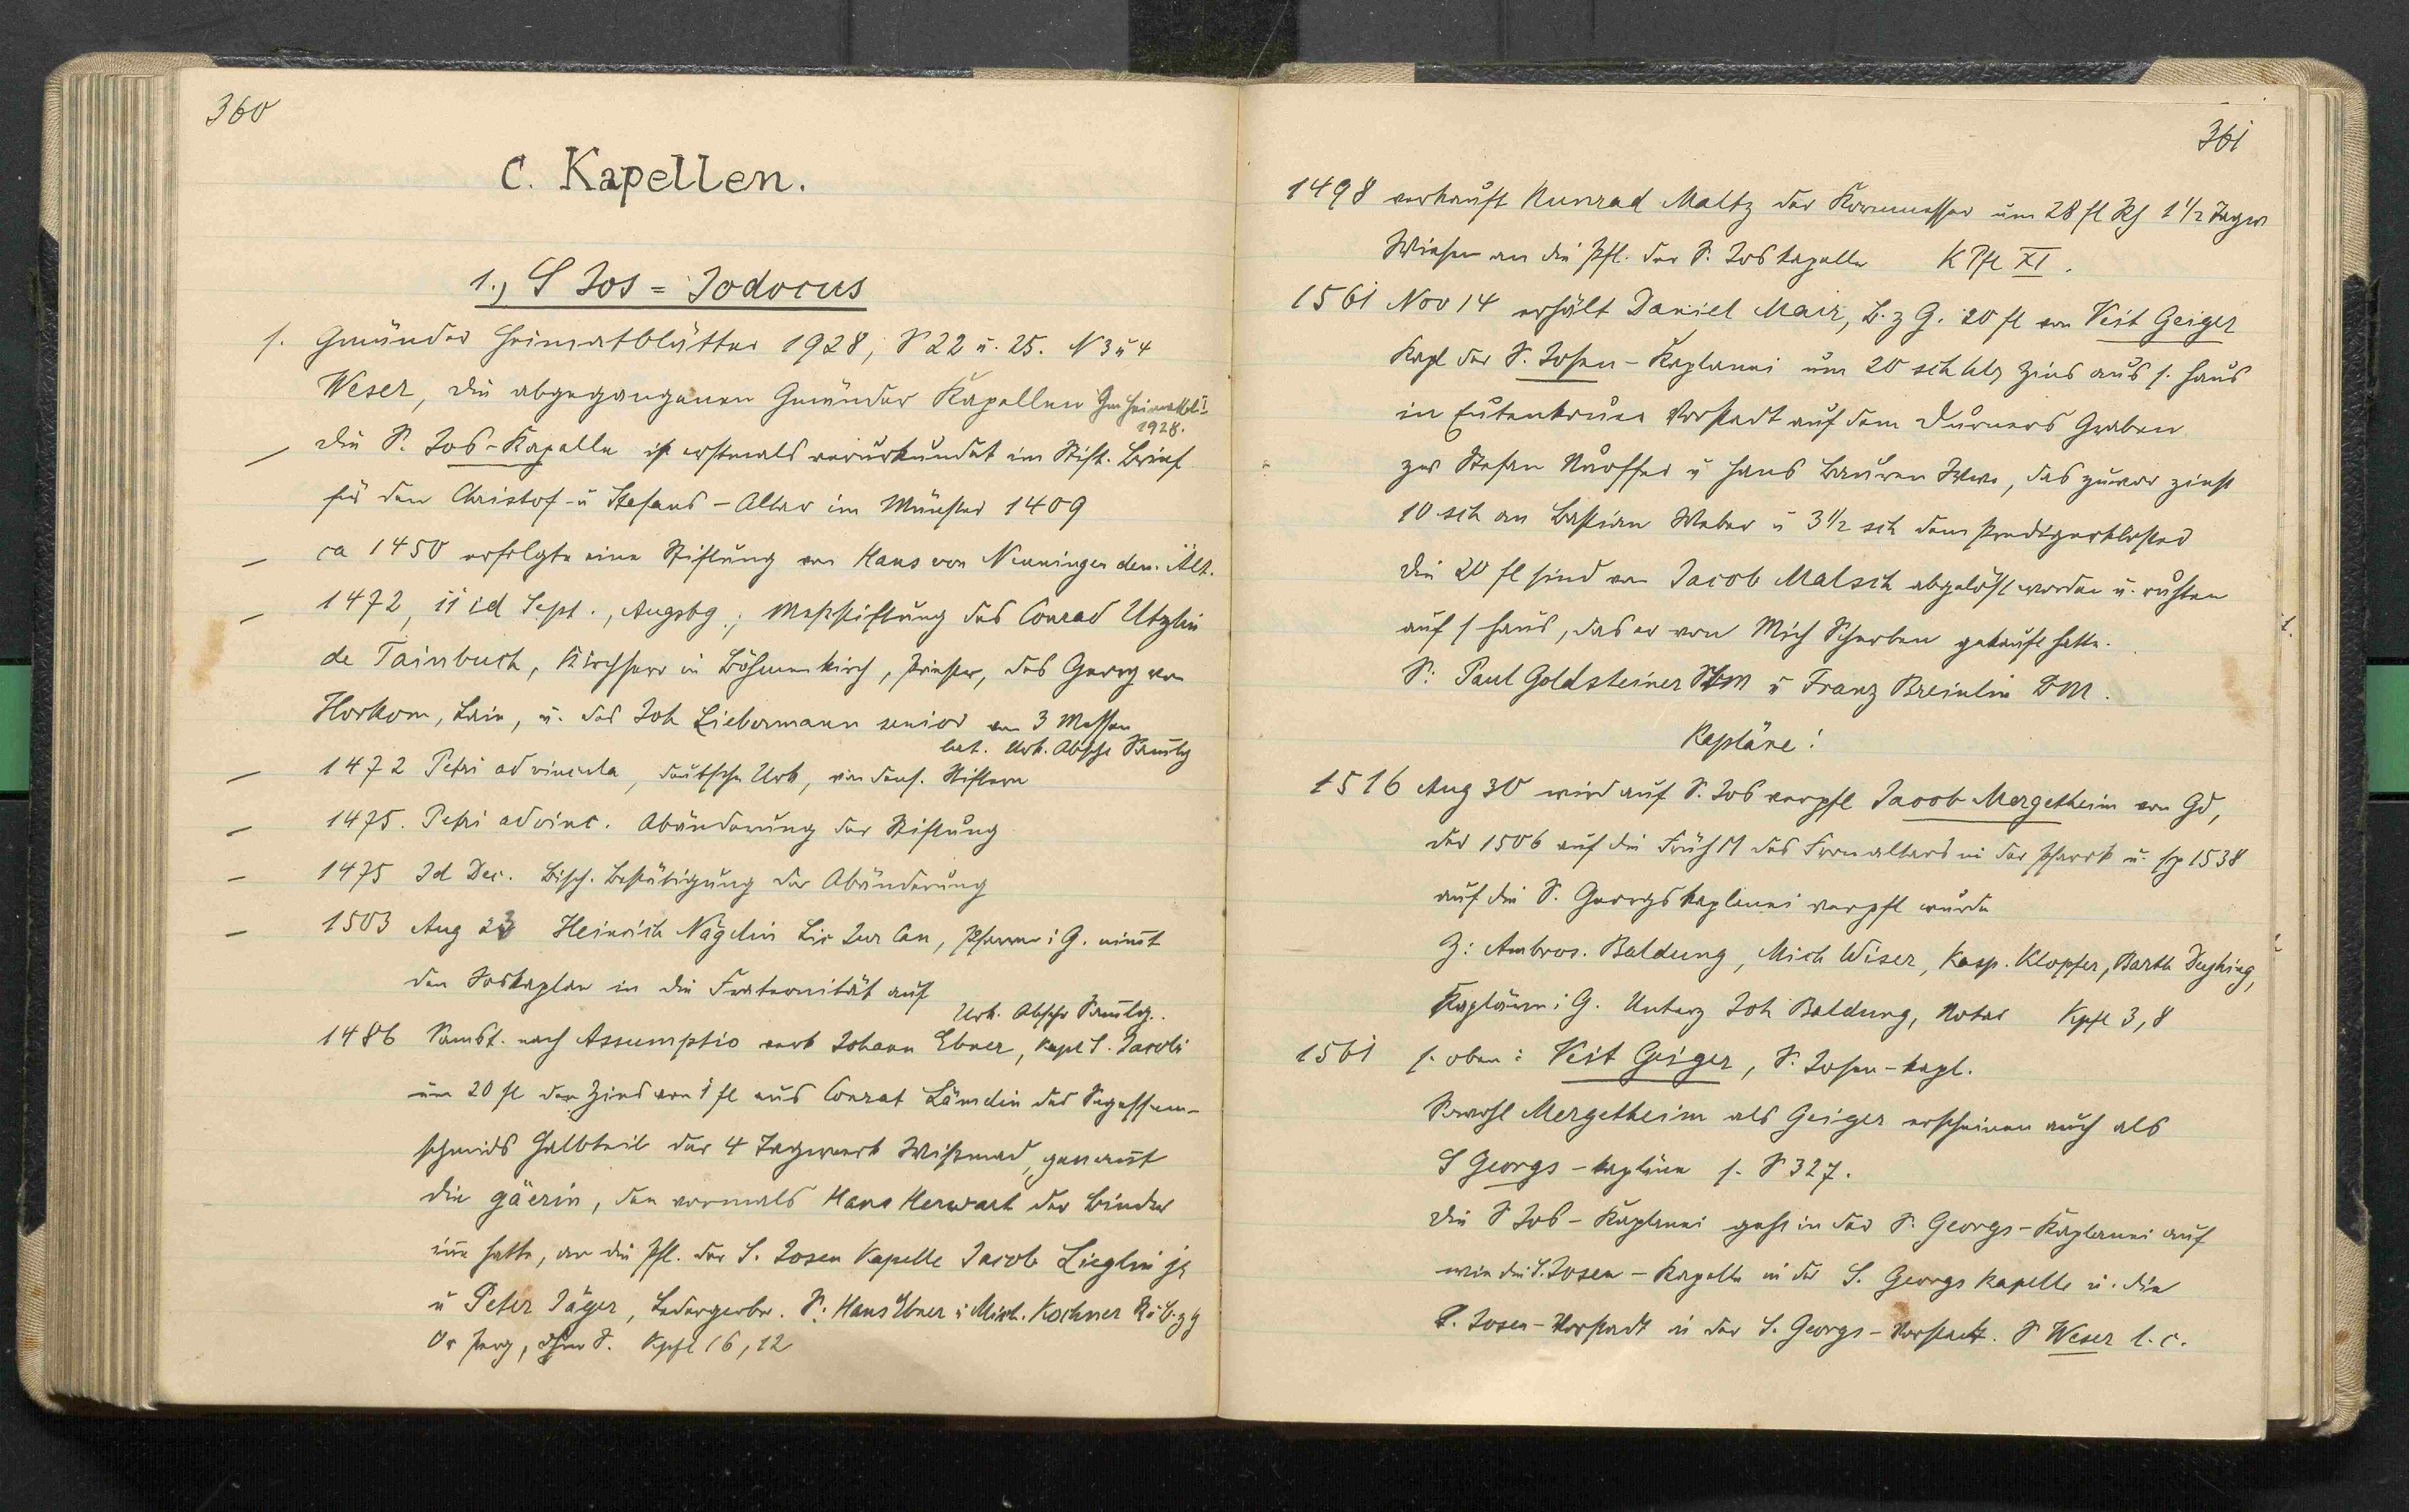 360
C. Kapellen.
1., S Jos = Jodocus
s. Gmünder Heimatblätter 1928, S 22 u. 25. N 3 u 4
Weser, die abgegangenen Gmünder Kapellen Gm Heimatbl.
1928.
— Die S. Jos-Kapelle ist erstmals verurkundet im Stift. Brief
für den Christof- u Stefans-Altar im Münster 1409
— ca 1450 erfolgte eine Stiftung von Hans von Nenningen dem Ält.
— 1472, ii id Sept., Augsbg.; Messstiftung des Conrad Utzlin
de Tainbuch, Kirchherr in Böhmenkirch, Priester, des Georg von
Horkom, Laie, u. des Joh Liebermann senior von 3 Messen
lat. Urk. Abschr
— 1472 Petri ad vincula, deutsche Urk, von dens. Stiftern
— 1475. Petri ad vinc. Abänderung der Stiftung
— 1475 Id Dec. Bisch. Bestätigung der Abänderung
— 1503 Aug 23 Heinrich Nägelin Lic Jur Can, Pfarrer i G. nimt
den Joskaplan in die Fraternität auf
Urk. Abschr
1486 Samst. nach Assumptio verk Johann Ebner, Kapl S. Jacobi
um 20 fl den Zins von 1 fl aus Conrat Lämdin des Segessen-
schmids Halbteil der 4 Tagwerk Wismad, genant
die gäerin, den vormals Hans Herwart der Binder
inne hatte, an die Pfl. der S. Josen Kapelle Jacob Lieglin jg
u Peter Jäger, Ledergerber. S: Hans Ebner u Mich. Kochner R u B. z G
Or Perg, ohne S. Kpfl 16, 12
361
1498 verkauft Kunrad Maltz der Kornmesser um 28 fl Rh 1 1/2 Tagw
Wiesen an die Pfl. der S. Joskapelle K Pfl XI.
1561 Nov 14 erhält Daniel Mair, B. z G. 20 fl von Veit Geiger
Kapl der S. Josen-Kaplanei um 20 sch hlr Zins aus s. Haus
in Eutenkruer Vorstadt auf dem Durners Graben
zw Stefan u Hans Wwe, das zuvor zinst
10 sch an Bastian Weber u 3 1/2 sch dem Predigerkloster
Die 20 fl sind von Jacob Malsch abgelöst worden u. ruhten
auf s Haus, das er von Mich Scherben gekauft hatte.
S: Paul Goldsteiner StM u Franz Breinlin BM.
Kapläne:
1516 Aug 30 wird auf S. Jos verpfl Jacob Mergetheim von Gd,
der 1506 auf die Früh M des Fronaltars in der Pfarrk u. sp 1538
auf die S. Georgskaplanei verpfl wurde
Z: Ambros. Baldung, Mich Wiser, Kasp. Klopfer, Barth Deyhing,
Kapläne i G. Unterz Joh Baldung, Notar Kpfl 3, 8
1561 s. oben: Veit Geiger, S. Josen-Kapl.
Sowohl Mergetheim als Geiger erscheinen auch als
S Georgs-kapläne s. S 327.
Die S Jos-Kaplanei geht in der S. Georgs-Kaplanei auf
wie die S. Josen-Kapelle in der S. Georgs Kapelle u. die
S. Josen-Vorstadt in der S. Georgs-Vorstadt. S Weser l. c.